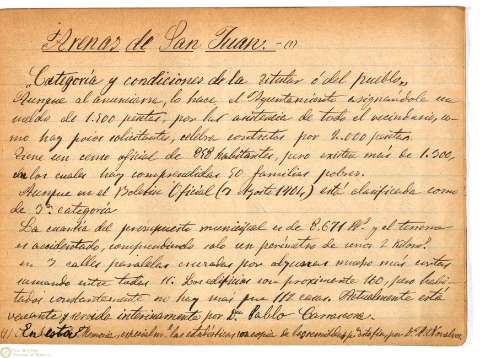 Arenas de San Juan.-(1)
"Categoría y condiciones de la titular o del pueblo.
Aunque al anunciarse, lo hace el Ayuntamiento asignándole un
sueldo de 1.500 pesetas, por la asistencia de todo el vecindario, co-
mo hay pocos solicitantes, celebra contratos por 2.000 pesetas.
Tiene un censo oficial de 858 habitantes, pero existen más de 1.300,
en los cuales hay comprendidas 50 familias pobres.
Aunque en el Boletín Oficial (2 Agosto 1904) está clasificada como
de 3ª categoría
La cuantía del presupuesto municipal es de 8.671 y el terreno
es accidentado, comprendiendo solo un perímetro de unos 2 kilom.
en 7 calles paralelas cruzadas por algunas mucho más cortas
sumando entre todas 11. Los edificios son proximamente 160, pero habi-
tados constantemente no hay más que 112 casas. Actualmente está
vacante y servida interinamente por D. Pablo Carrascosa.
(1) En esta Memoria, especialmente las estadísticas son copia de las remitidas por